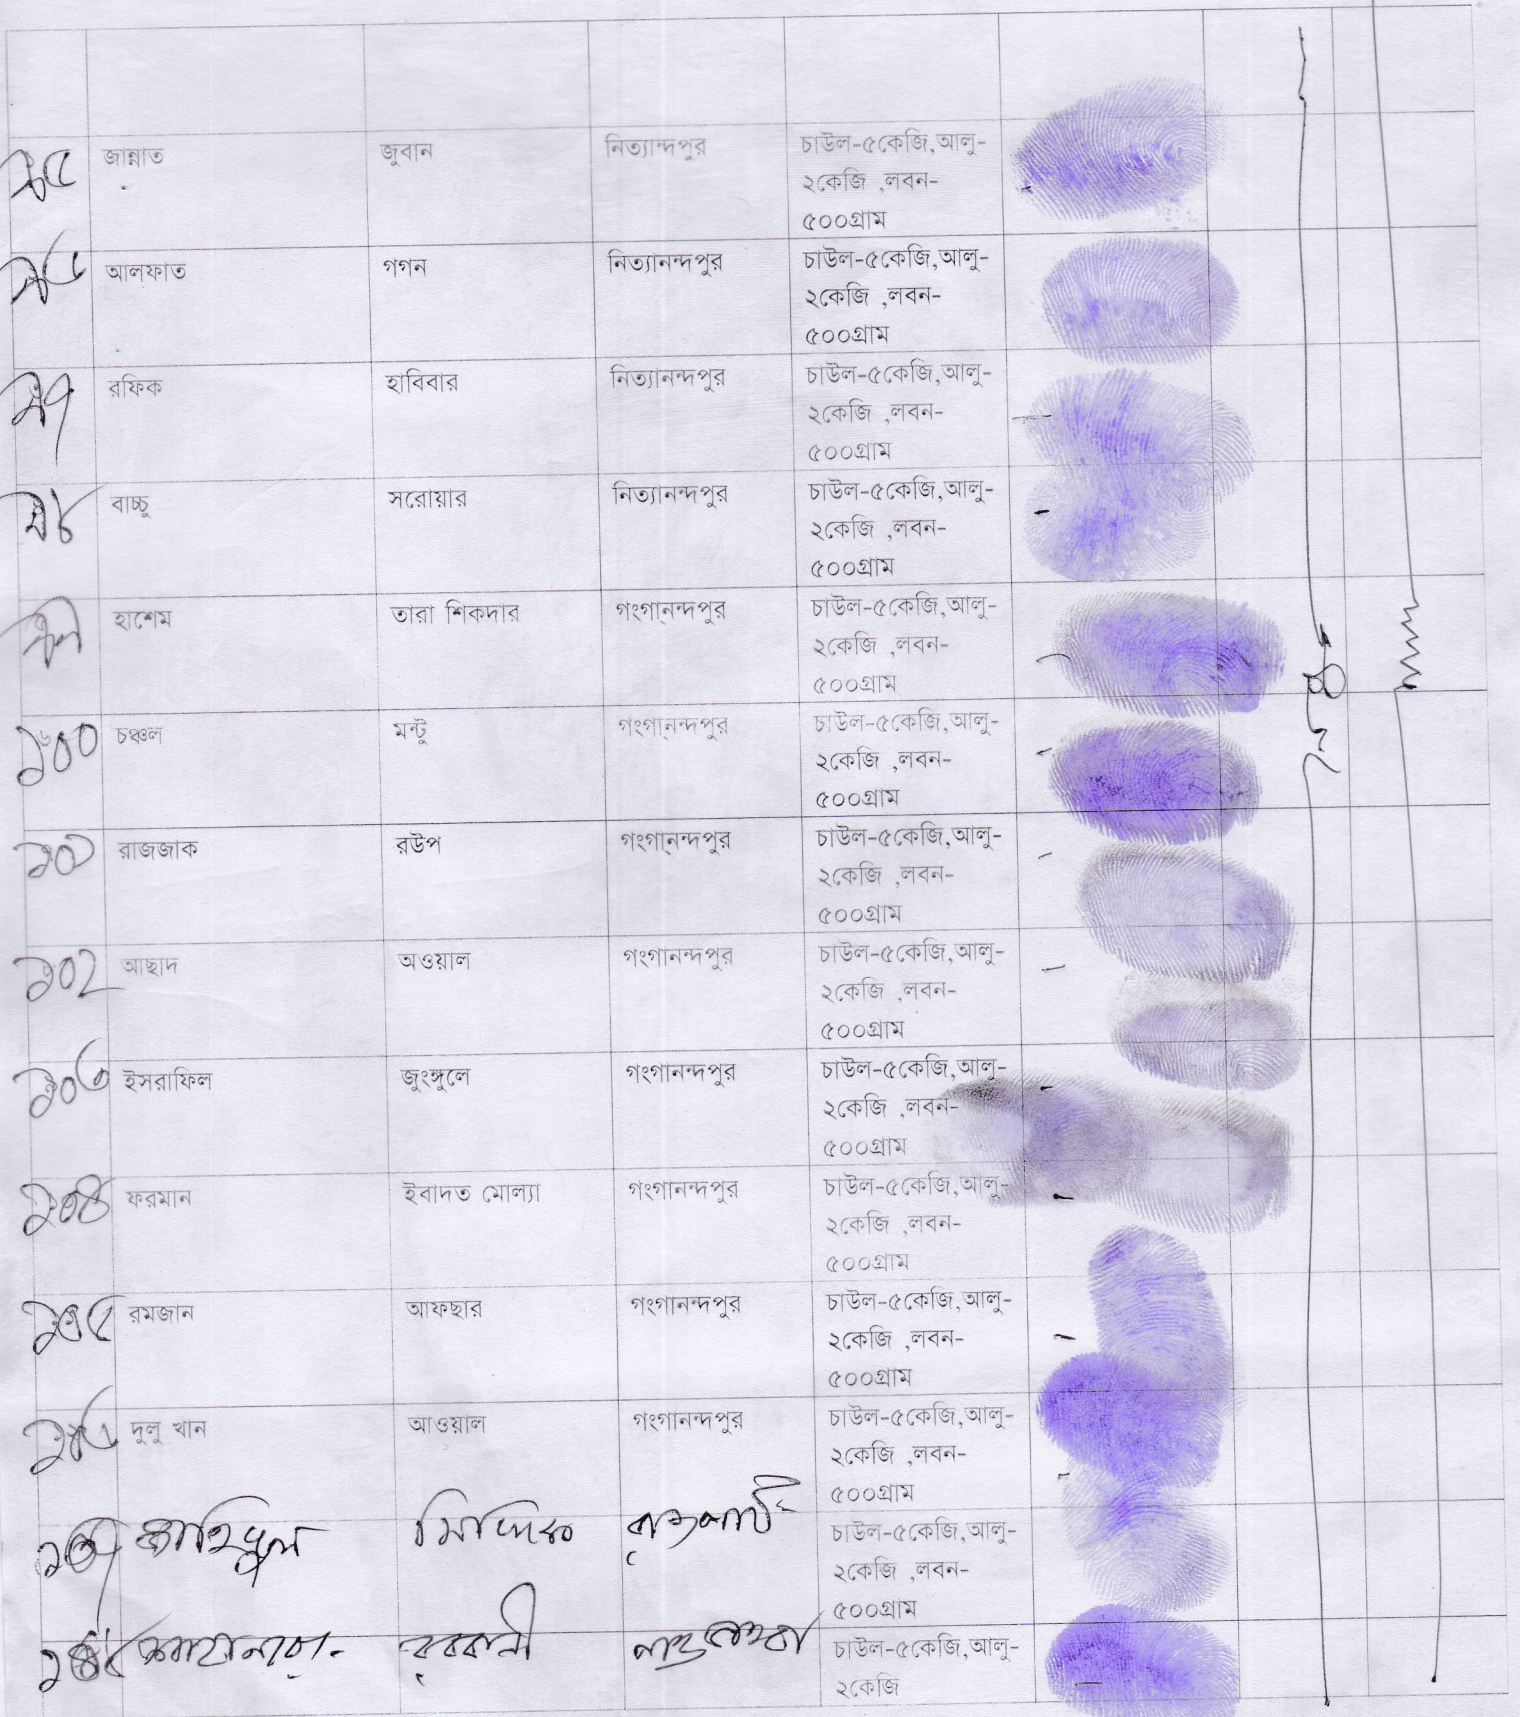 ৯৫ জান্নাত জুবান নিত্যান্দপুর চাউল-৫কেজি,আলু-
২কেজি ,লবন-
৫০০গ্রাম
৯৬ আলফাত গগন নিত্যানন্দপুর চাউল-৫কেজি,আলু-
২কেজি ,লবন-
৫০০গ্রাম
৯৭ রফিক হাবিবার নিত্যানন্দপুর চাউল-৫কেজি,আলু-
২কেজি ,লবন-
৫০০গ্রাম
৯৮ বাচ্চু সরোয়ার নিত্যানন্দপুর চাউল-৫কেজি,আলু-
২কেজি ,লবন-
৫০০গ্রাম
৯৯ হাশেম তারা শিকদার গংগানন্দপুর চাউল-৫কেজি,আলু-
২কেজি ,লবন-
৫০০গ্রাম
১০০ চঞ্চল মন্টু গংগানন্দপুর চাউল-৫কেজি,আলু-
২কেজি ,লবন-
৫০০গ্রাম
১০১ রাজজাক রউপ গংগানন্দপুর চাউল-৫কেজি,আলু-
২কেজি ,লবন-
৫০০গ্রাম
১০২ আছাদ অওয়াল গংগানন্দপুর চাউল-৫কেজি,আলু-
২কেজি ,লবন-
৫০০গ্রাম
১০৩ ইসরাফিল জুংঙ্গুলে গংগানন্দপুর চাউল-৫কেজি,আলু-
২কেজি ,লবন-
৫০০গ্রাম
১০৪ ফরমান ইবাদত মোল্যা গংগানন্দপুর চাউল-৫কেজি,আলু-
২কেজি ,লবন-
৫০০গ্রাম
১০৫ রমজান আফছার গংগানন্দপুর চাউল-৫কেজি,আলু-
২কেজি ,লবন-
৫০০গ্রাম
১০৬ দুলু খান আওয়াল গংগানন্দপুর চাউল-৫কেজি,আলু-
২কেজি ,লবন-
৫০০গ্রাম
১০৭ চাউল-৫কেজি,আলু-
২কেজি ,লবন-
৫০০গ্রাম
১০৮ চাউল-৫কেজি,আলু-
২কেজি